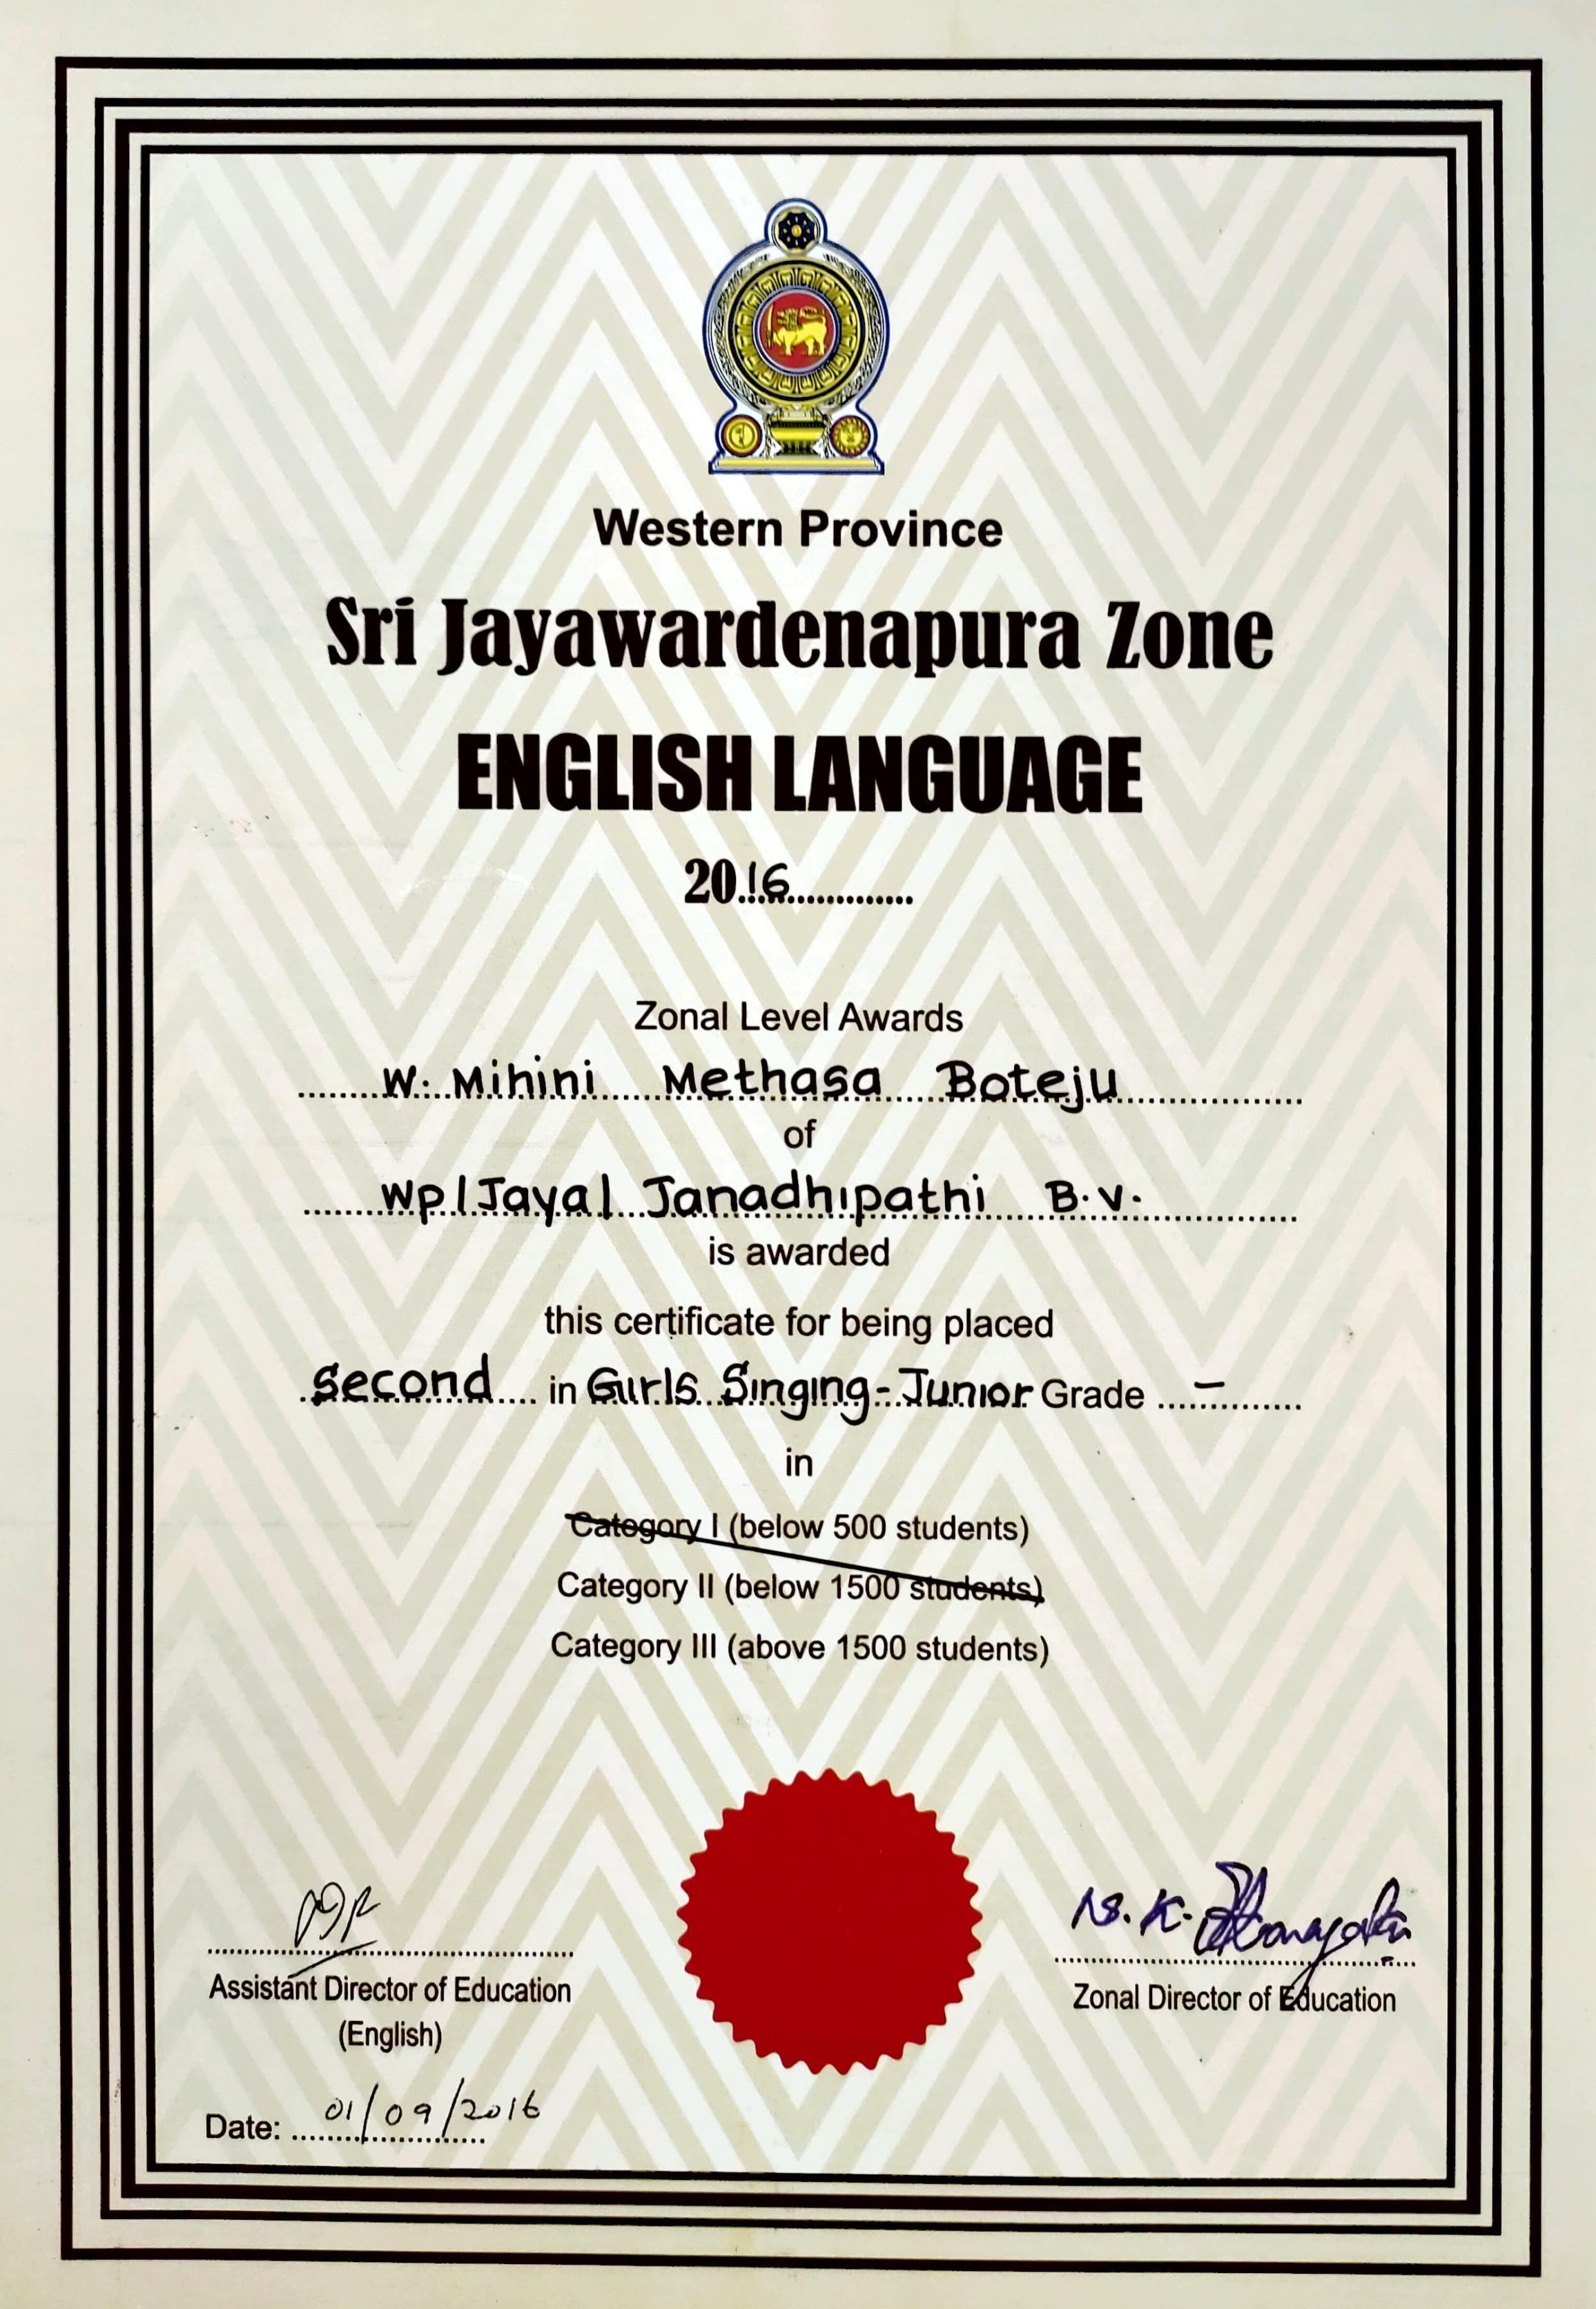 Western Province
Sri Jayawardenapura Zone
ENGLISH LANGUAGE
2016
Zonal Level Awards
W. Mihini Methasa Boteju
of
WP/Jaya/ Janadhipathi B.V.
is awarded
this certificate for being placed
second in Girls Singing - Junior Grade –
in
Category I (below 500 students)
Category II (below 1500 students)
Category III (above 1500 students)
N. K.
Assistant Director of Education Zonal Director of Education
(English)
Date: 01/09/2016